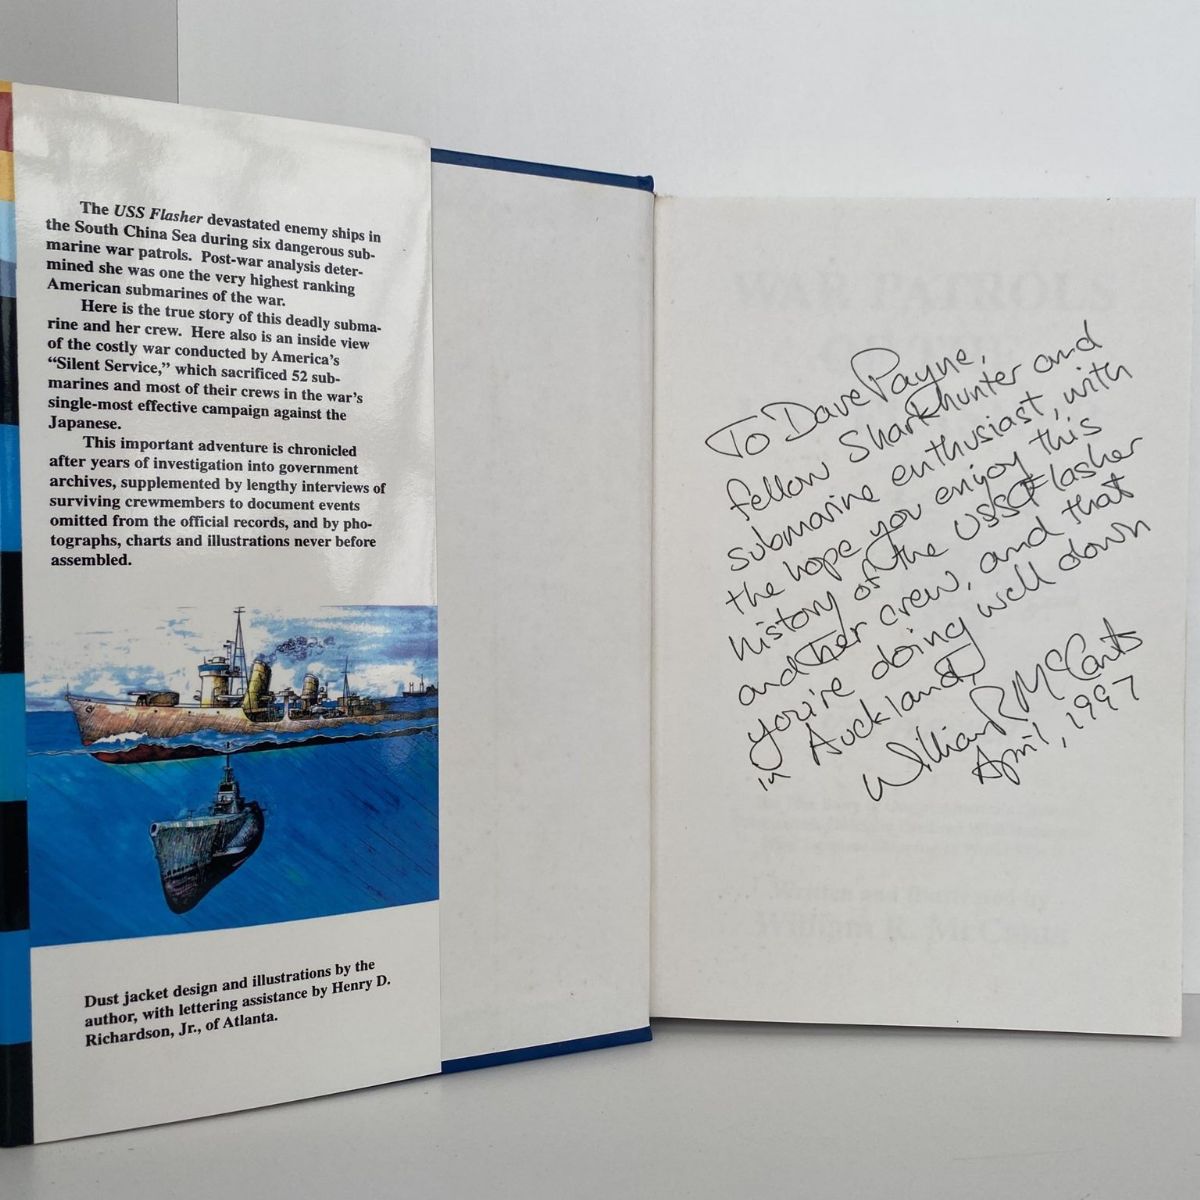 The USS Flasher devastated enemy ships in
the South China Sea during six dangerous sub-
marine war patrols. Post-war analysis deter-
mined she was one the very highest ranking
American submarines of the war.
Here is the true story of this deadly subma-
rine and her crew. Here also is an inside view
of the costly war conducted by America's
“Silent Service,” which sacrificed 52 sub-
marines and most of their crews in the war's
single-most effective campaign against the
Japanese.
This important adventure is chronicled
after years of investigation into government
archives, supplemented by lengthy interviews of
surviving crewmembers to document events
omitted from the official records, and by pho-
tographs, charts and illustrations never before
assembled.
Dust jacket design and illustrations by the
author, with lettering assistance by Henry D.
Richardson, Jr., of Atlanta.
To Dave Payne,
fellow Sharkhunter and
submarine enthusiast, with
the hope you enjoy this
history of the USS Flasher
and her crew, and that
you're doing well down
in Auckland,
William R McCants
April, 1997
WAR PATROLS
Written and Illustrated by
William R. McCants